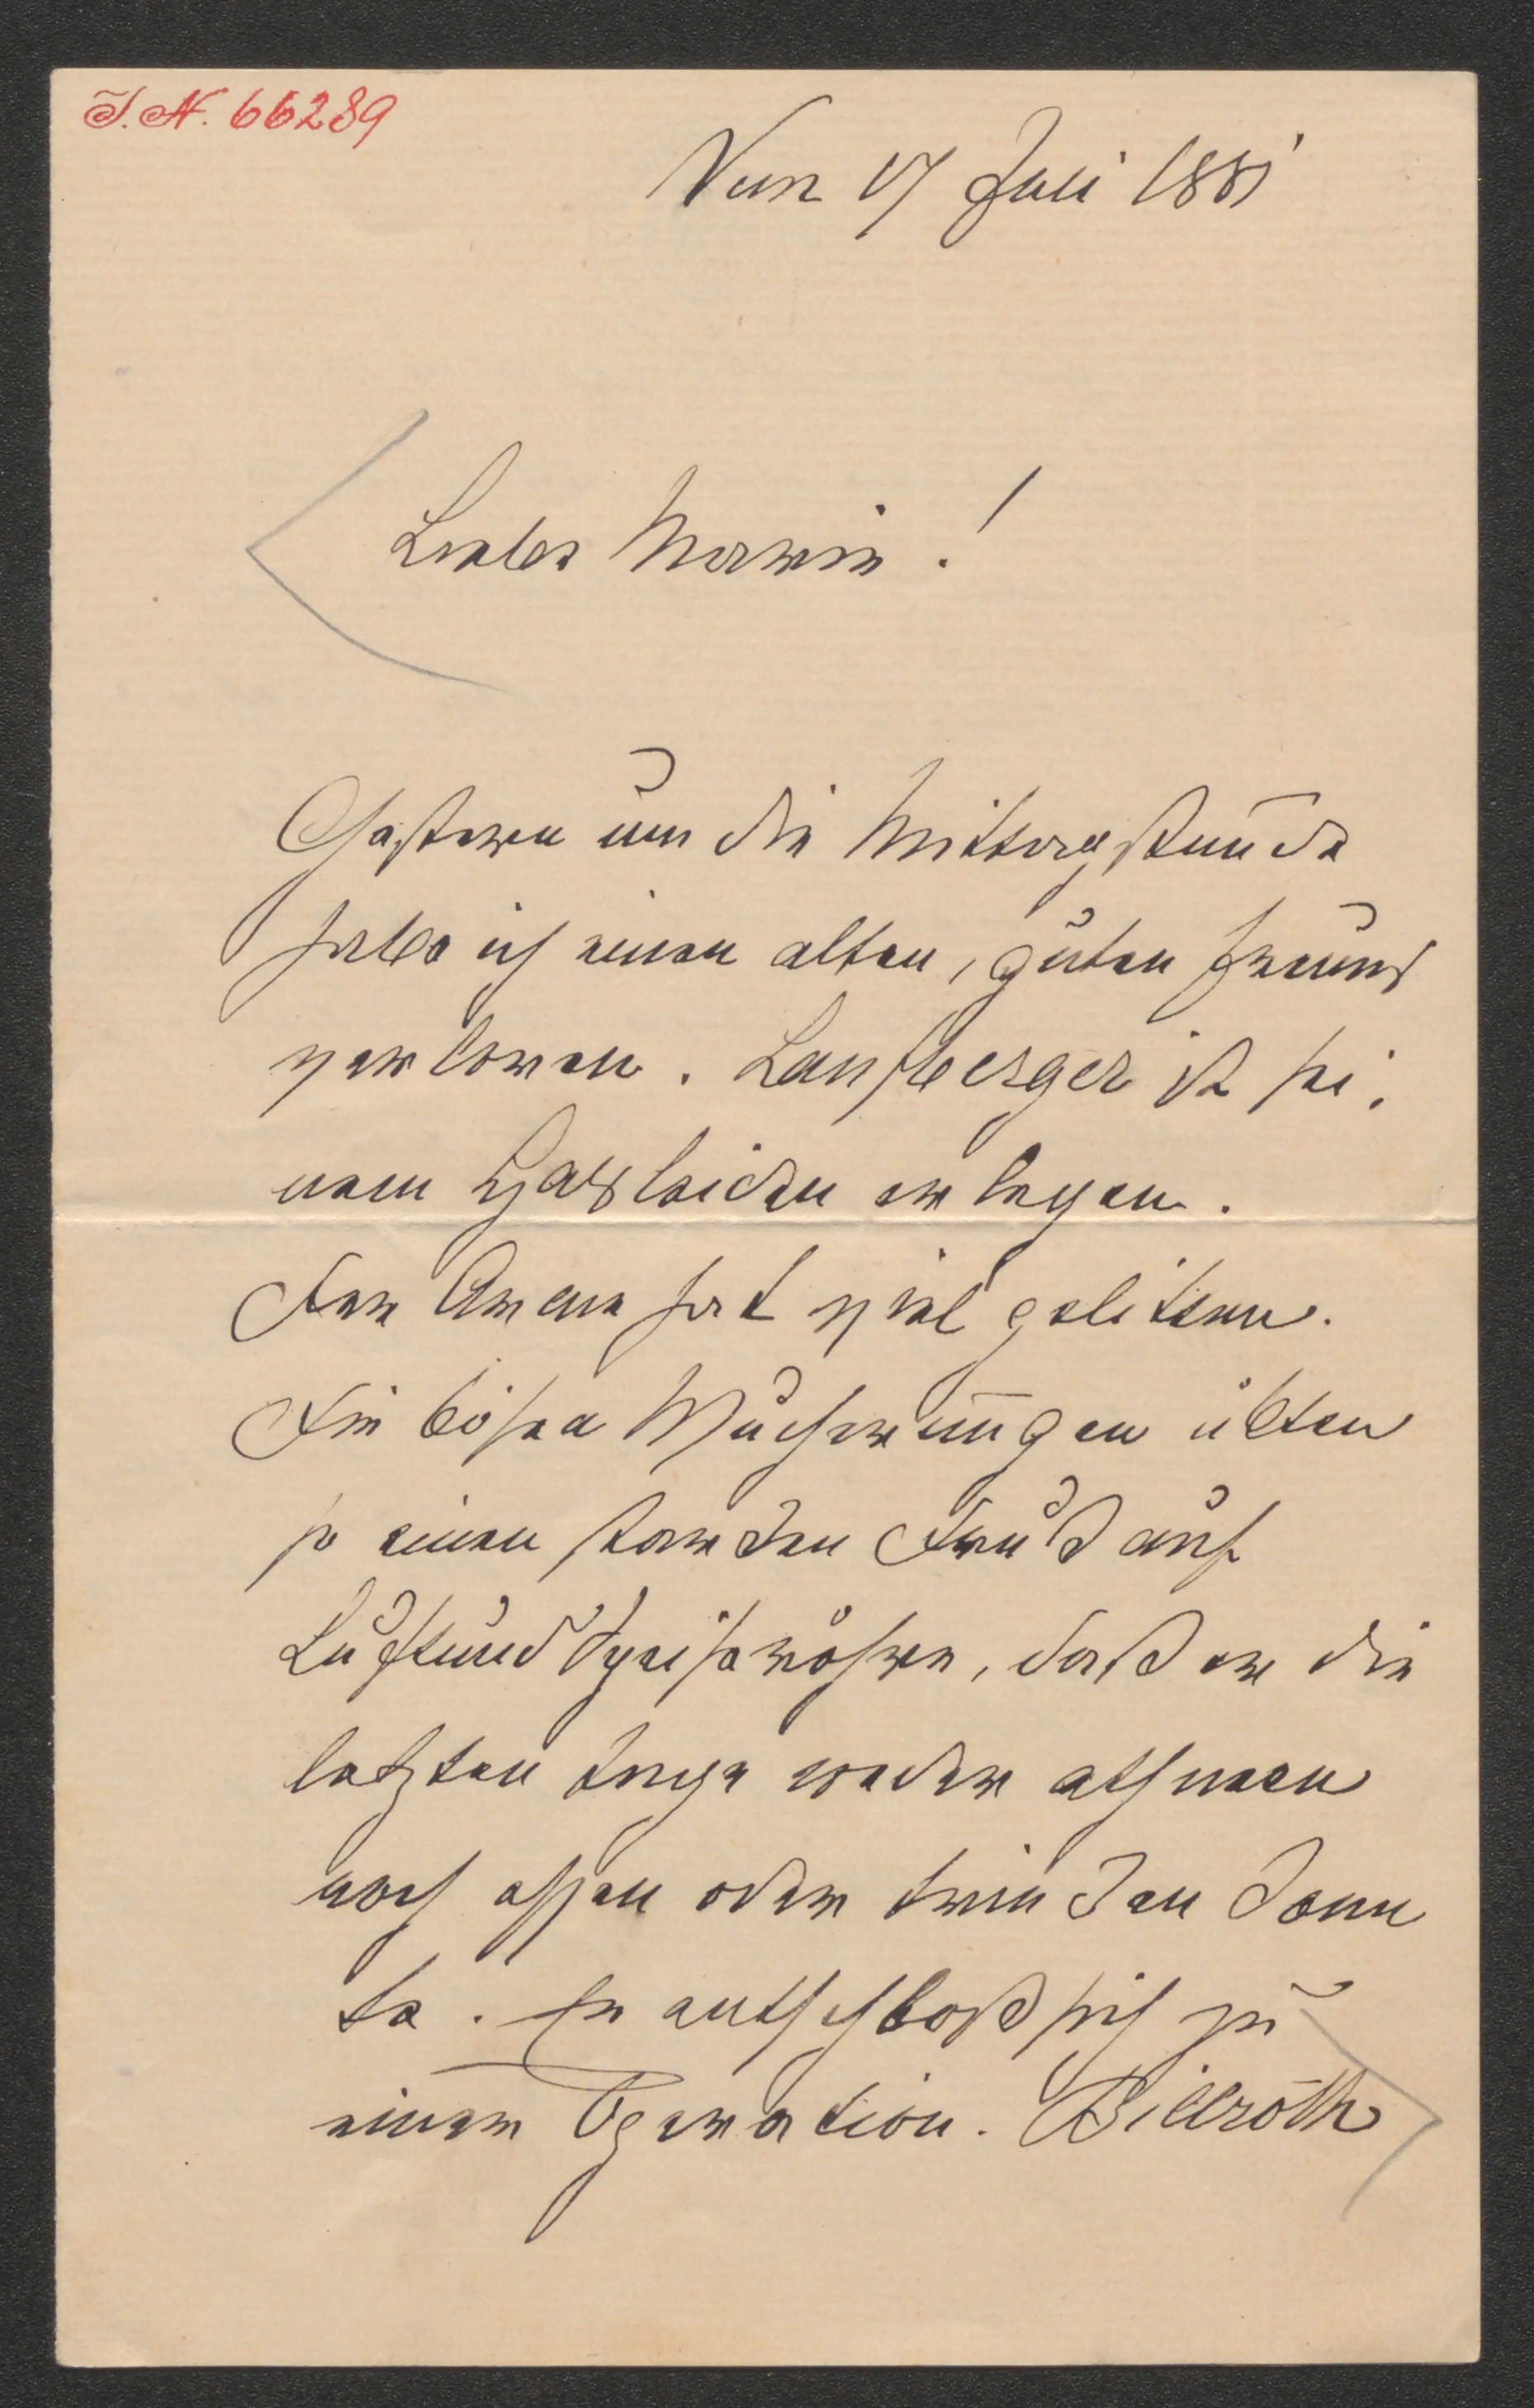 I.N. 66289
17 Juli 1881
Liebe Marie!
Gestern um die Mittagstunde
habe ich einen alten, guten Freund
verloren. Laufberger ist sei,
nem Halsleiden erlegen.
Der Arme hat viel gelitten.
Die bösen Wucherungen übten
so einen starken Druck auf
Luft und Speiseröhre, daß er die
letzten Tage weder athmen
noch essen oder trinken konn
te. Er entschloß sich zu
einer Operation. Billroth